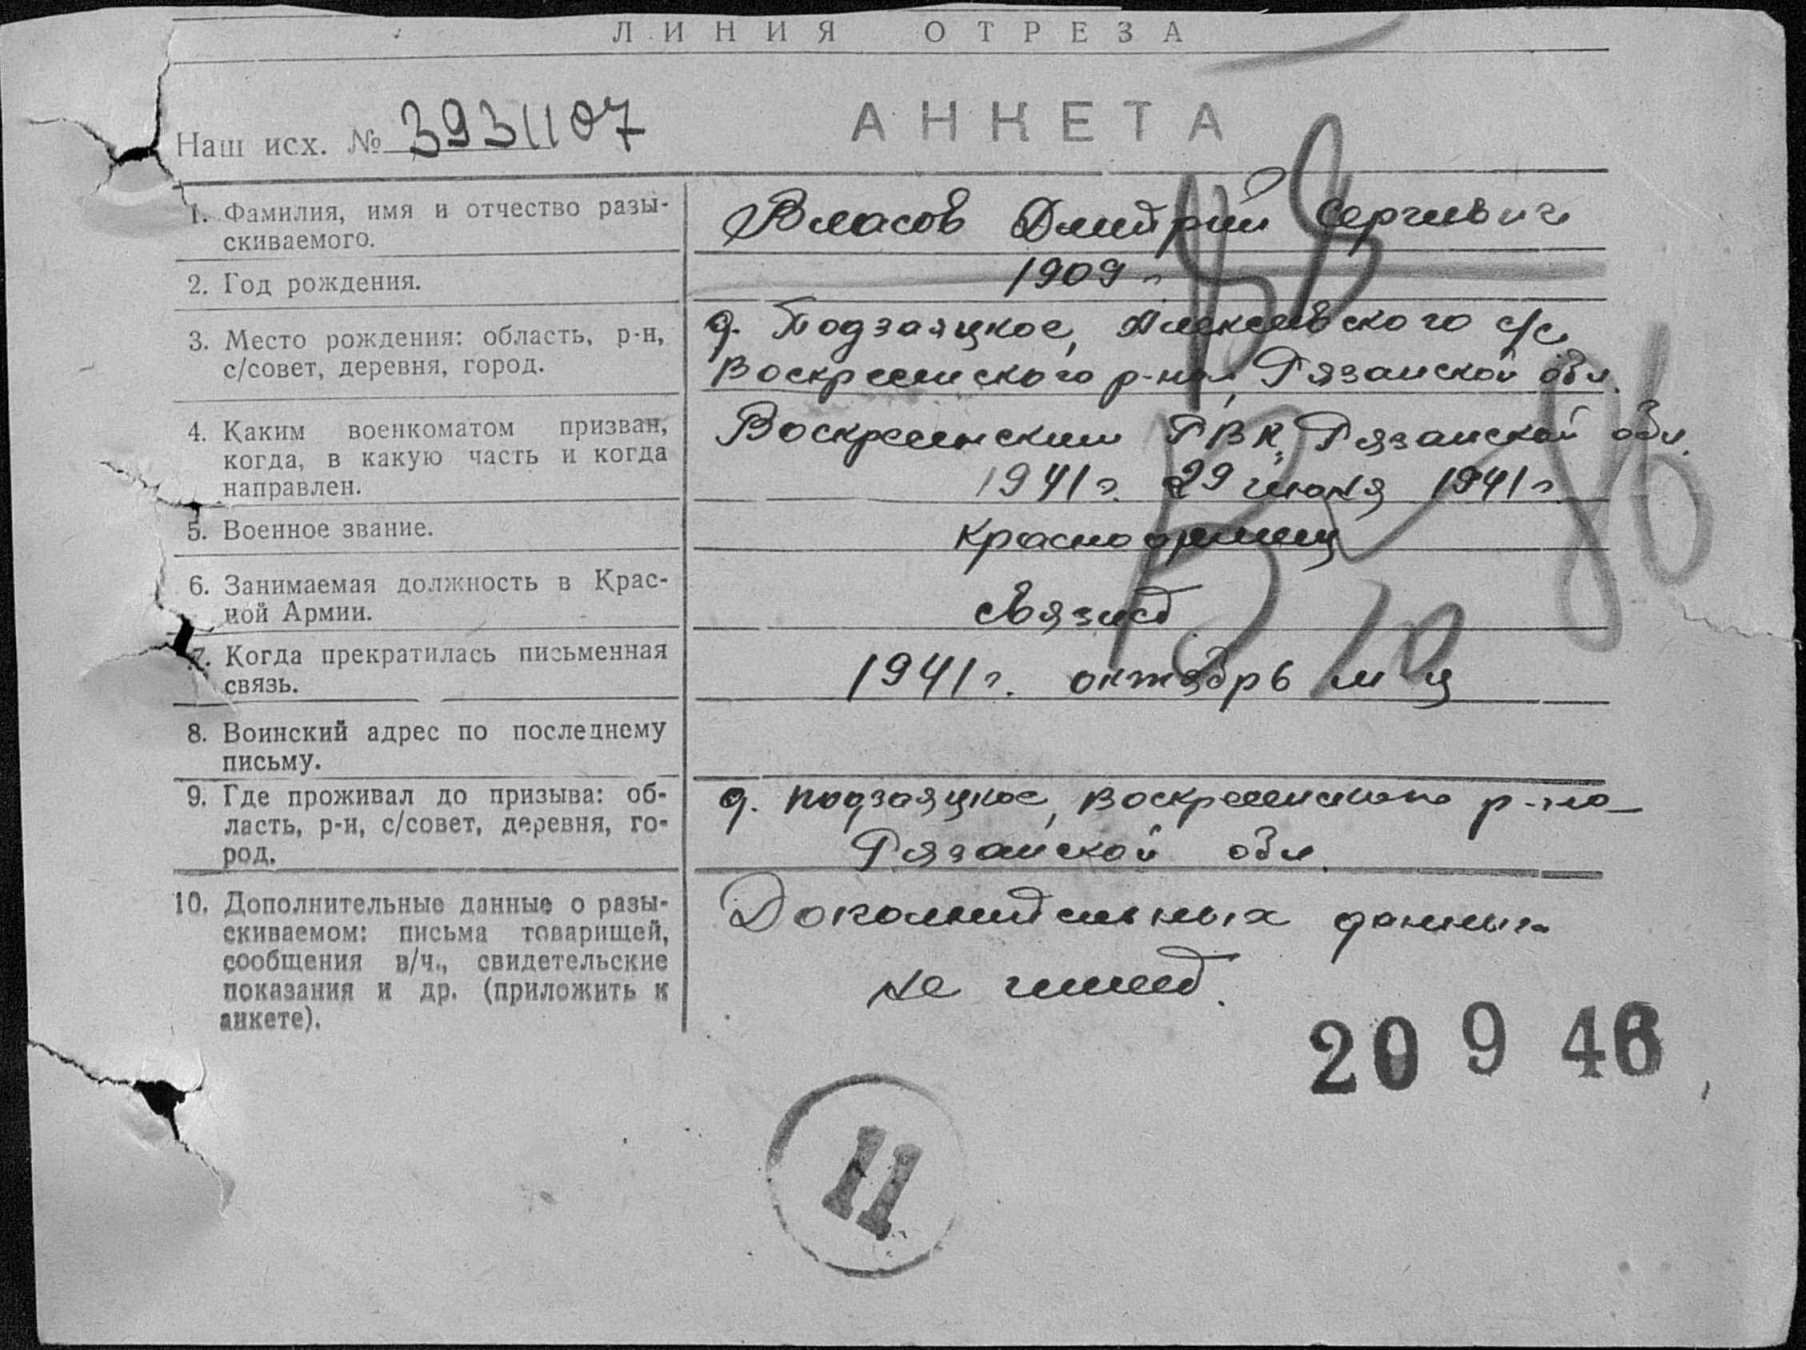 ЛИНИЯ ОТРЕЗА
Наш исх. № 3931107
АНКЕТА
1. Фамилия, имя и отчество разы-
скиваемого.
Власов Дмитрий Сергиевич
2. Год рождения.
1909 г
3. Место рождения: область, р-н,
с/совет, деревня, город.
д. Подзаяцкое, Алексеевского с/с,
Воскресенского р-на, Рязанской обл.
4. Каким военкоматом призван,
когда, в какую часть и когда
направлен.
Воскресенским РВК, Рязанской обл.
1941 г. 29 1941 г
5. Военное звание.
красноармеец
6. Занимаемая должность в Крас-
ной Армии.
связист
7. Когда прекратилась письменная
связь.
1941 г. октябрь м ц
8. Воинский адрес по последнему
письму.
9. Где проживал до призыва: об-
ласть, р-н, с/совет, деревня, го-
род.
д. подзаяцкое, Воскресенского р-на
Рязанской обл.
10. Дополнительные данные о разы-
скиваемом: письма товарищей,
сообщения в/ч., свидетельские
показания и др. (приложить к
анкете).
Дополнительных данных
не имеет.
20 9 46
11
86